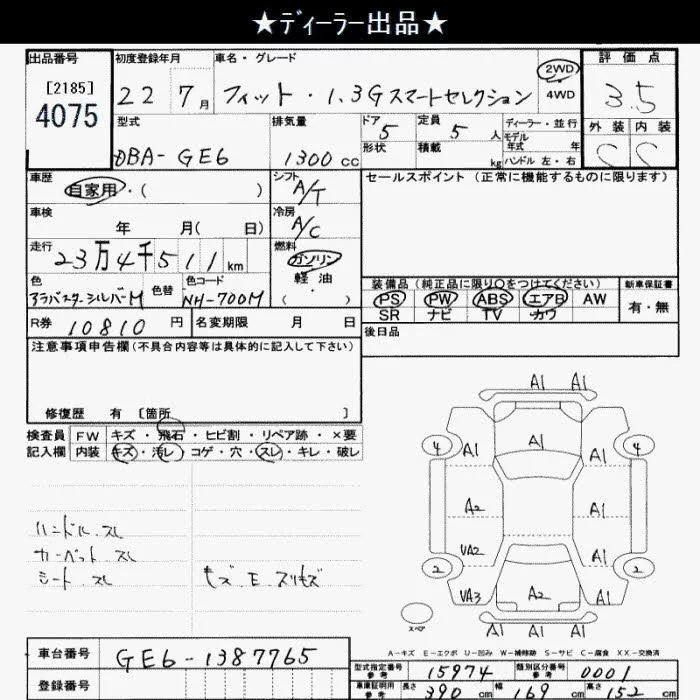 ★ディーラー出品★
出品番号 初度登録年月 車名・グレード 評価点
[2185] 22 7月 フィット・1.3Gスマートセレクション 2WD 4WD 3.5
4075 型式 排気量 ドア 5 定員 5人 ディーラー・並行 外装 内装
形状 積載 kg モデル年式 年 C C
DBA-GE6 1300cc ハンドル 左・右
車歴 シフト セールスポイント (正常に機能するものに限ります)
自家用・( ) A/T
車検 冷房
年 月( 日) A/C
走行 燃料
23万4千511km ガソリン
色 色替 色コード 軽油 装備品 (純正品に限り○をつけてください) 新車保証書
アラバスターシルバーM NH-700M ・( ) PS PW ABS エアB AW 有・無
R券 10810円 名変期限 月 日 SR ナビ TV カワ
注意事項申告欄(不具合内容等は具体的に記入して下さい) 後日品
修復歴 有 [箇所 ]
検査員 FW キズ・飛石・ヒビ割・リペア跡・×要
記入欄 内装 キズ・汚レ・コゲ・穴・スレ・キレ・破レ
A1 A1
4 A1 A1 A1 4
A2 A1
VA2 A1
2 VA3 A2 A1 2
A1 A1 A1
スペア
ハンドル.スレ
カーペット.スレ
シート.スレ
A-キズ E-エクボ U-凹み W-補修跡 S-サビ C-腐食 XX-交換済
車台番号 GE6-1387765
登録番号
型式指定番号 参考 15974 類別区分番号 参考 0001
車庫証明用 参考 長さ 390cm 幅 169cm 高さ 152cm